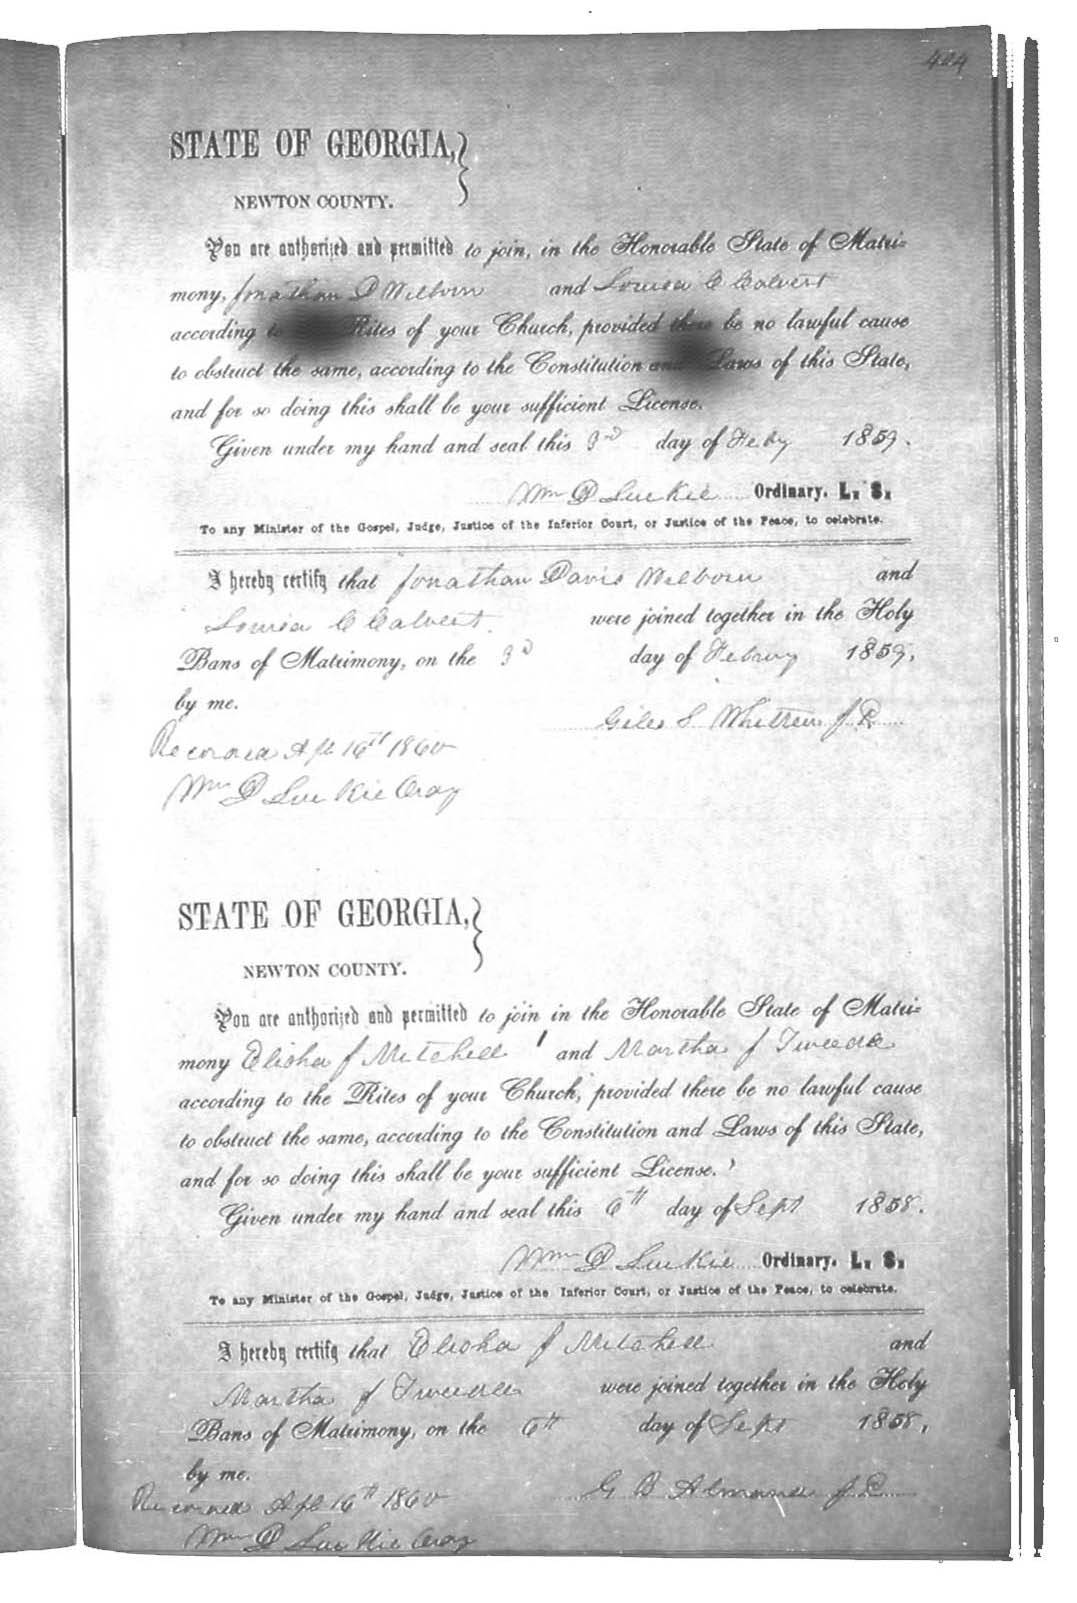 424
STATE OF GEORGIA,}
NEWTON COUNTY.
You are authorized and permitted to join, in the Honorable State of Matri-
mony, Jonathan D Welborn and Louisa C Calvert
according to Rites of your Church, provided there be no lawful cause
to obstruct the same, according to the Constitution and Laws of this State,
and for so doing this shall be your sufficient License.
Given under my hand and seal this 3rd day of Feby 1859.
Wm D Luckie Ordinary. L. S.
To any Minister of the Gospel, Judge, Justice of the Inferior Court, or Justice of the Peace, to celebrate.
I hereby certify that Jonathan Davis Welborn and
Louisa C Calvert. were joined together in the Holy
Bans of Matrimony, on the 3d day of Febury 1859,
by me.
Giles S Whitten J P
Recorded Apl 16th 1860
Wm D Luckie Ordy
STATE OF GEORGIA,}
NEWTON COUNTY.
You are authorized and permitted to join in the Honorable State of Matri-
mony Elisha J Mitchell and Martha J Tweedle
according to the Rites of your Church, provided there be no lawful cause
to obstruct the same, according to the Constitution and Laws of this State,
and for so doing this shall be your sufficient License.
Given under my hand and seal this 6th day of Sept 1858.
Wm D Luckie Ordinary. L. S.
To any Minister of the Gospel, Judge, Justice of the Inferior Court, or Justice of the Peace, to celebrate.
I hereby certify that Elisha J Mitchell and
Martha J Tweedle were joined together in the Holy
Bans of Matrimony, on the 6th day of Sept 1858,
by me.
G B Almand J P
Recorded Apl 16th 1860
Wm D Luckie Ordy